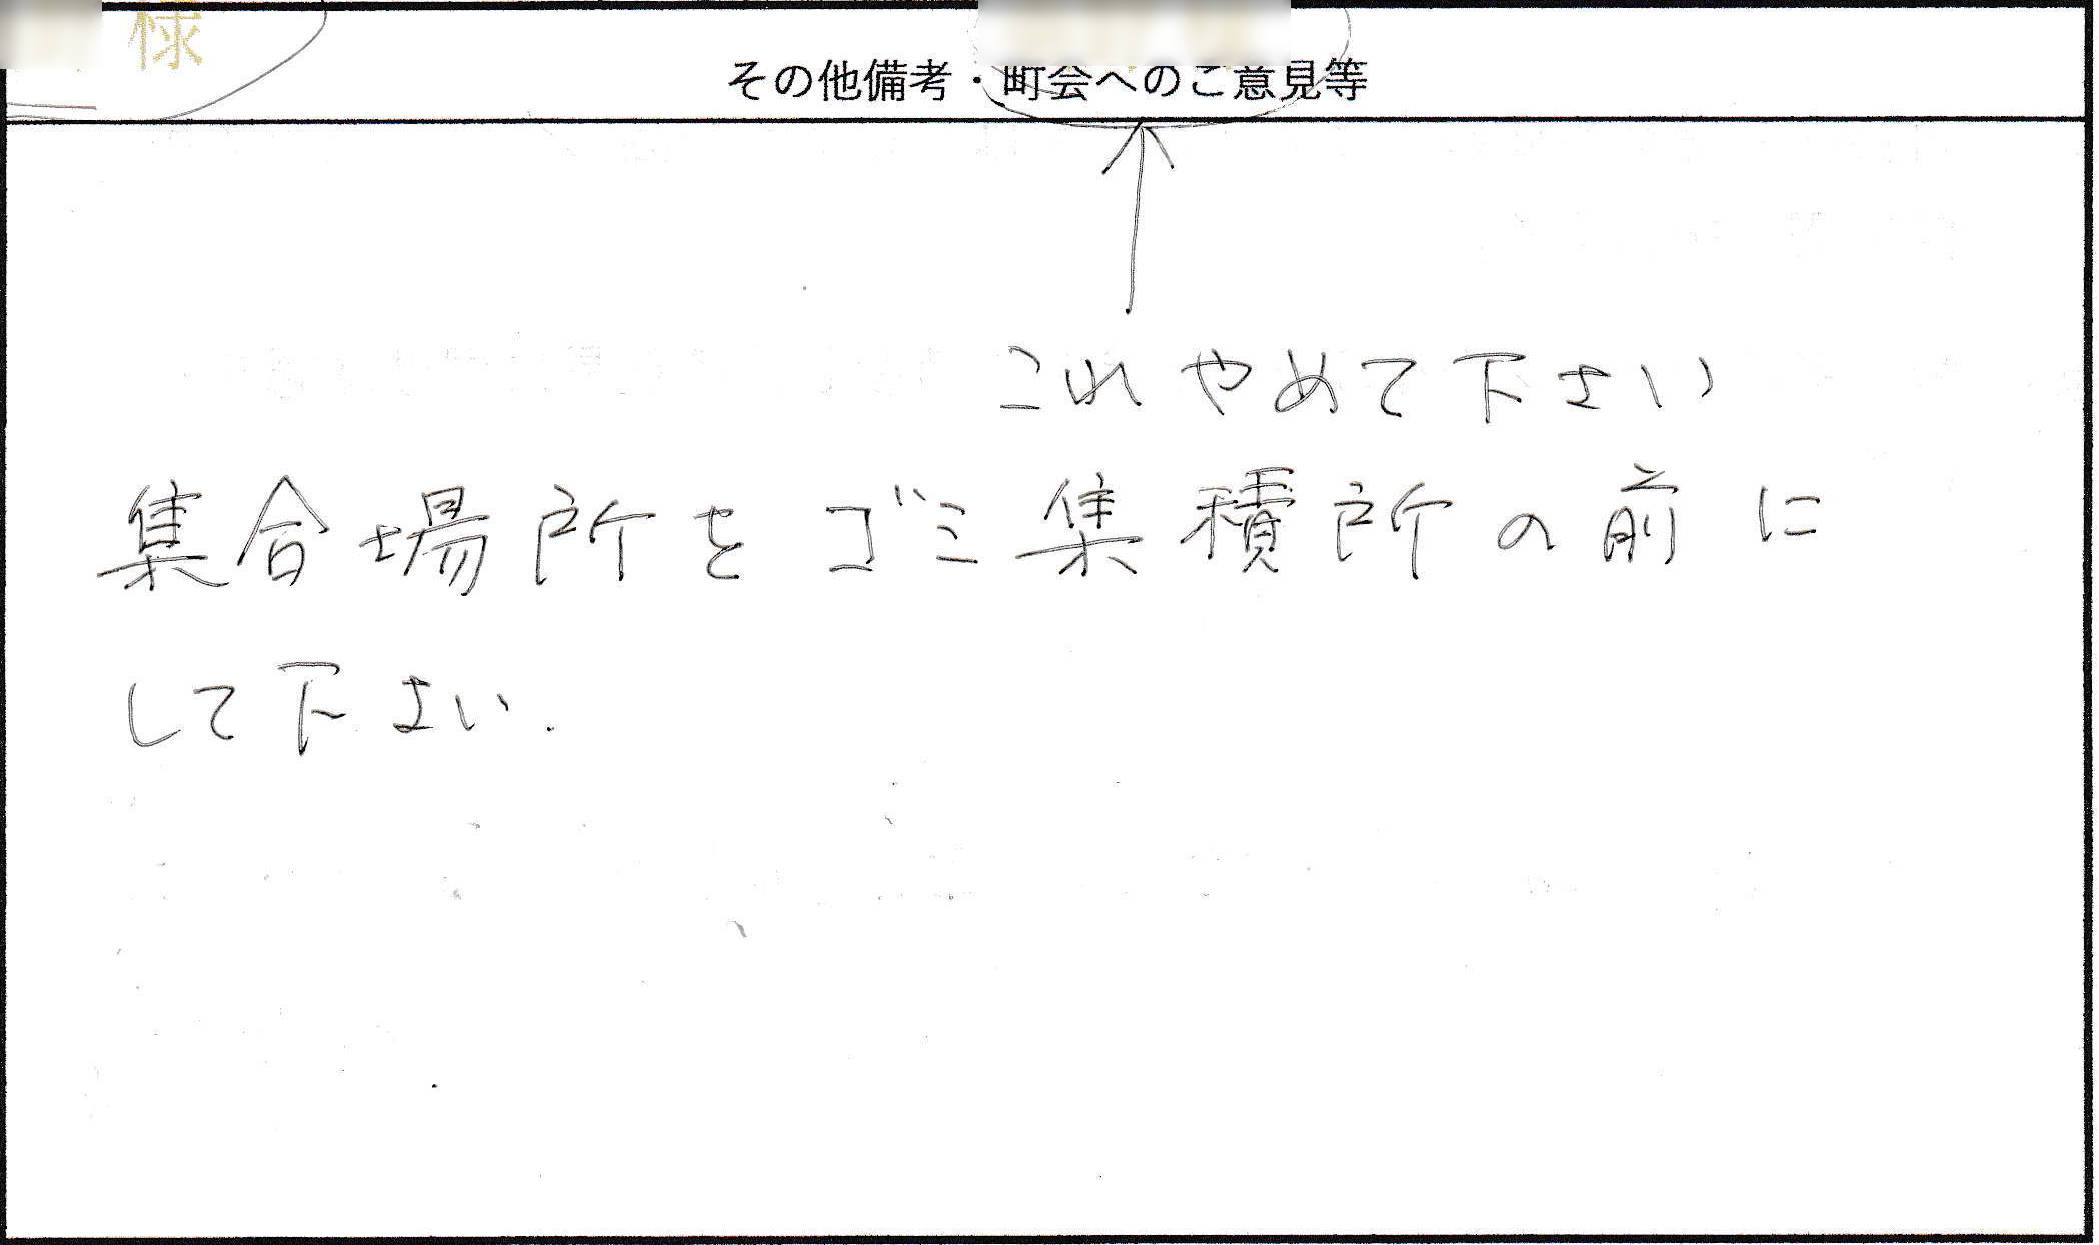 様
その他備考・町会へのご意見等
これやめて下さい
集合場所をゴミ集積所の前に
して下さい.